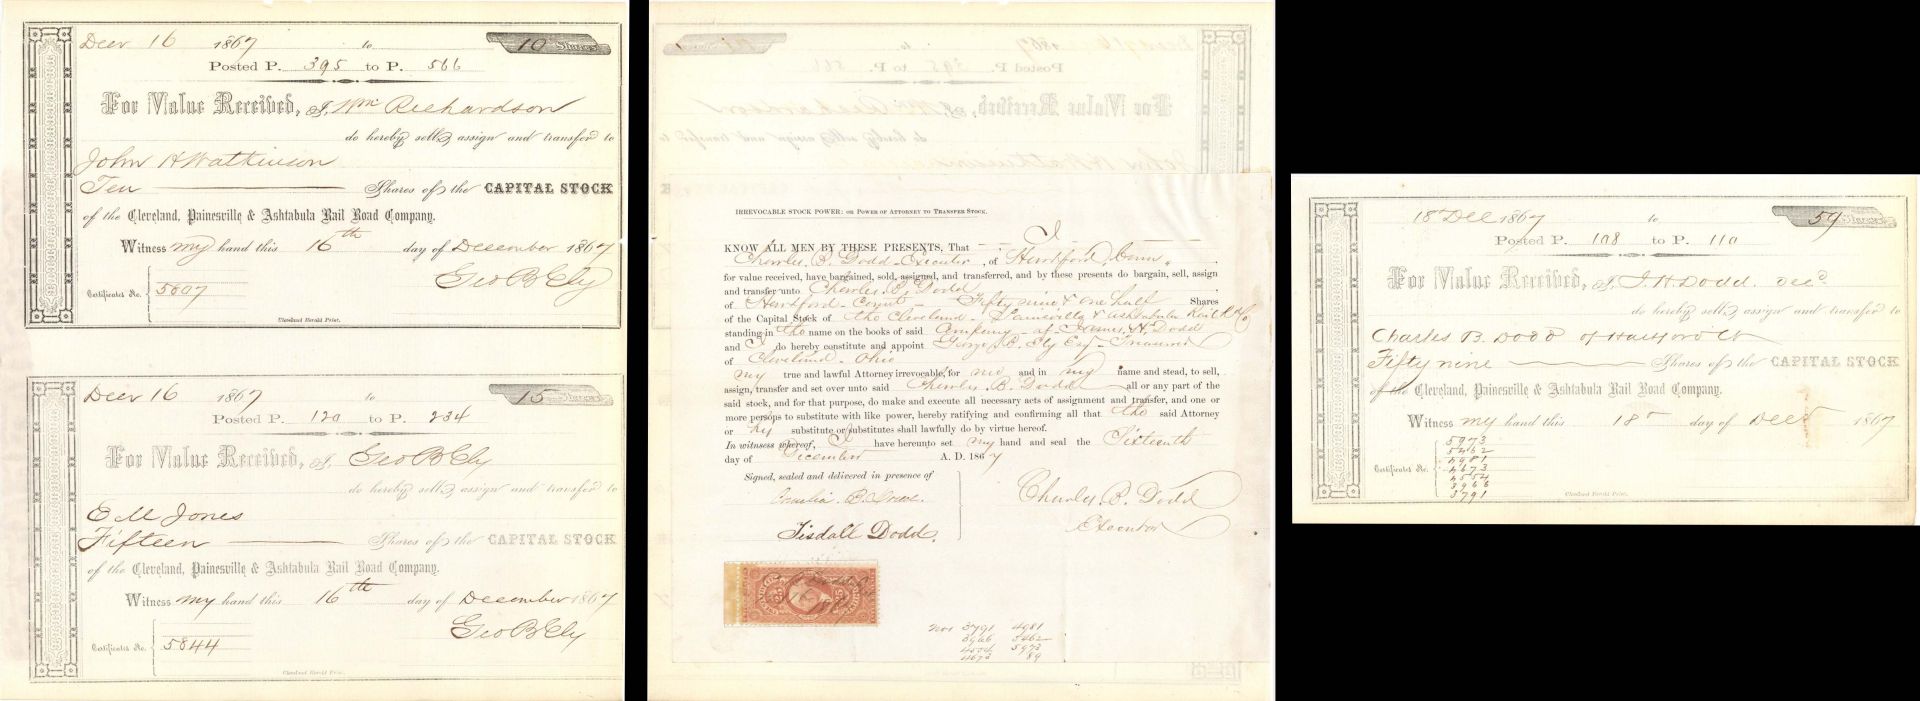 Decr 16 1867 to 10 Shares
Posted P. 395 to P. 566
For Value Received, I, Wm Richardson
do hereby sell, assign and transfer to
John H Watkinson
Ten Shares of the CAPITAL STOCK
of the Cleveland, Painesville & Ashtabula Rail Road Company.
Witness my hand this 16th day of December 1867
Geo B Ely
Certificates No. 5807
Cleveland Herald Print.
Decr 16 1867 to 15 Shares
Posted P. 120 to P. 234
For Value Received, I, Geo B Ely
do hereby sell, assign and transfer to
E M Jones
Fifteen Shares of the CAPITAL STOCK
of the Cleveland, Painesville & Ashtabula Rail Road Company.
Witness my hand this 16th day of December 1867
Geo B Ely
Certificates No. 5844
Cleveland Herald Print.
IRREVOCABLE STOCK POWER: OR POWER OF ATTORNEY TO TRANSFER STOCK.
KNOW ALL MEN BY THESE PRESENTS, That I
Charles B. Dodd - Executor, of Hartford, Conn.
for value received, have bargained, sold, assigned, and transferred, and by these presents do bargain, sell, assign
and transfer unto Charles B. Dodd
of Hartford - Connt - Fifty nine & one half Shares
of the Capital Stock of the Cleveland - Painsville & Ashtabula Rail R Co
standing in the name on the books of said Company - of James H. Dodd
and I do hereby constitute and appoint George B. Ely Esq - Treasurer
of Cleveland - Ohio
my true and lawful Attorney irrevocable, for me and in my name and stead, to sell,
assign, transfer and set over unto said Charles B. Dodd all or any part of the
said stock, and for that purpose, do make and execute all necessary acts of assignment and transfer, and one or
more persons to substitute with like power, hereby ratifying and confirming all that the said Attorney
or his substitute or substitutes shall lawfully do by virtue hereof.
In witness whereof, I have hereunto set my hand and seal the Sixteenth
day of December A. D. 1867
Signed, sealed and delivered in presence of
Charles B. Dodd
Executor
Tisdall Dodd.
25 25
Nos 3791 4981
3966 5462
4554 5973
4673 89
18th Dec 1867 to 59 Shares
Posted P. 108 to P. 110
For Value Received, I, J. H Dodd. Decd
do hereby sell, assign and transfer to
Charles B. Dodd of Hartford Ct
Fifty nine Shares of the CAPITAL STOCK
of the Cleveland, Painesville & Ashtabula Rail Road Company.
Witness my hand this 18th day of Decr 1867
5973
5462
4981
Certificates No. 4673
4554
3966
3791
Cleveland Herald Print.